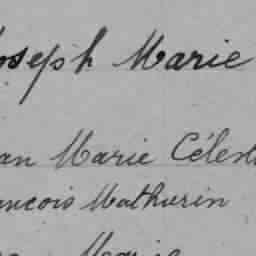 Joseph Marie
Jean Marie Célest
François Mathurin
Marie